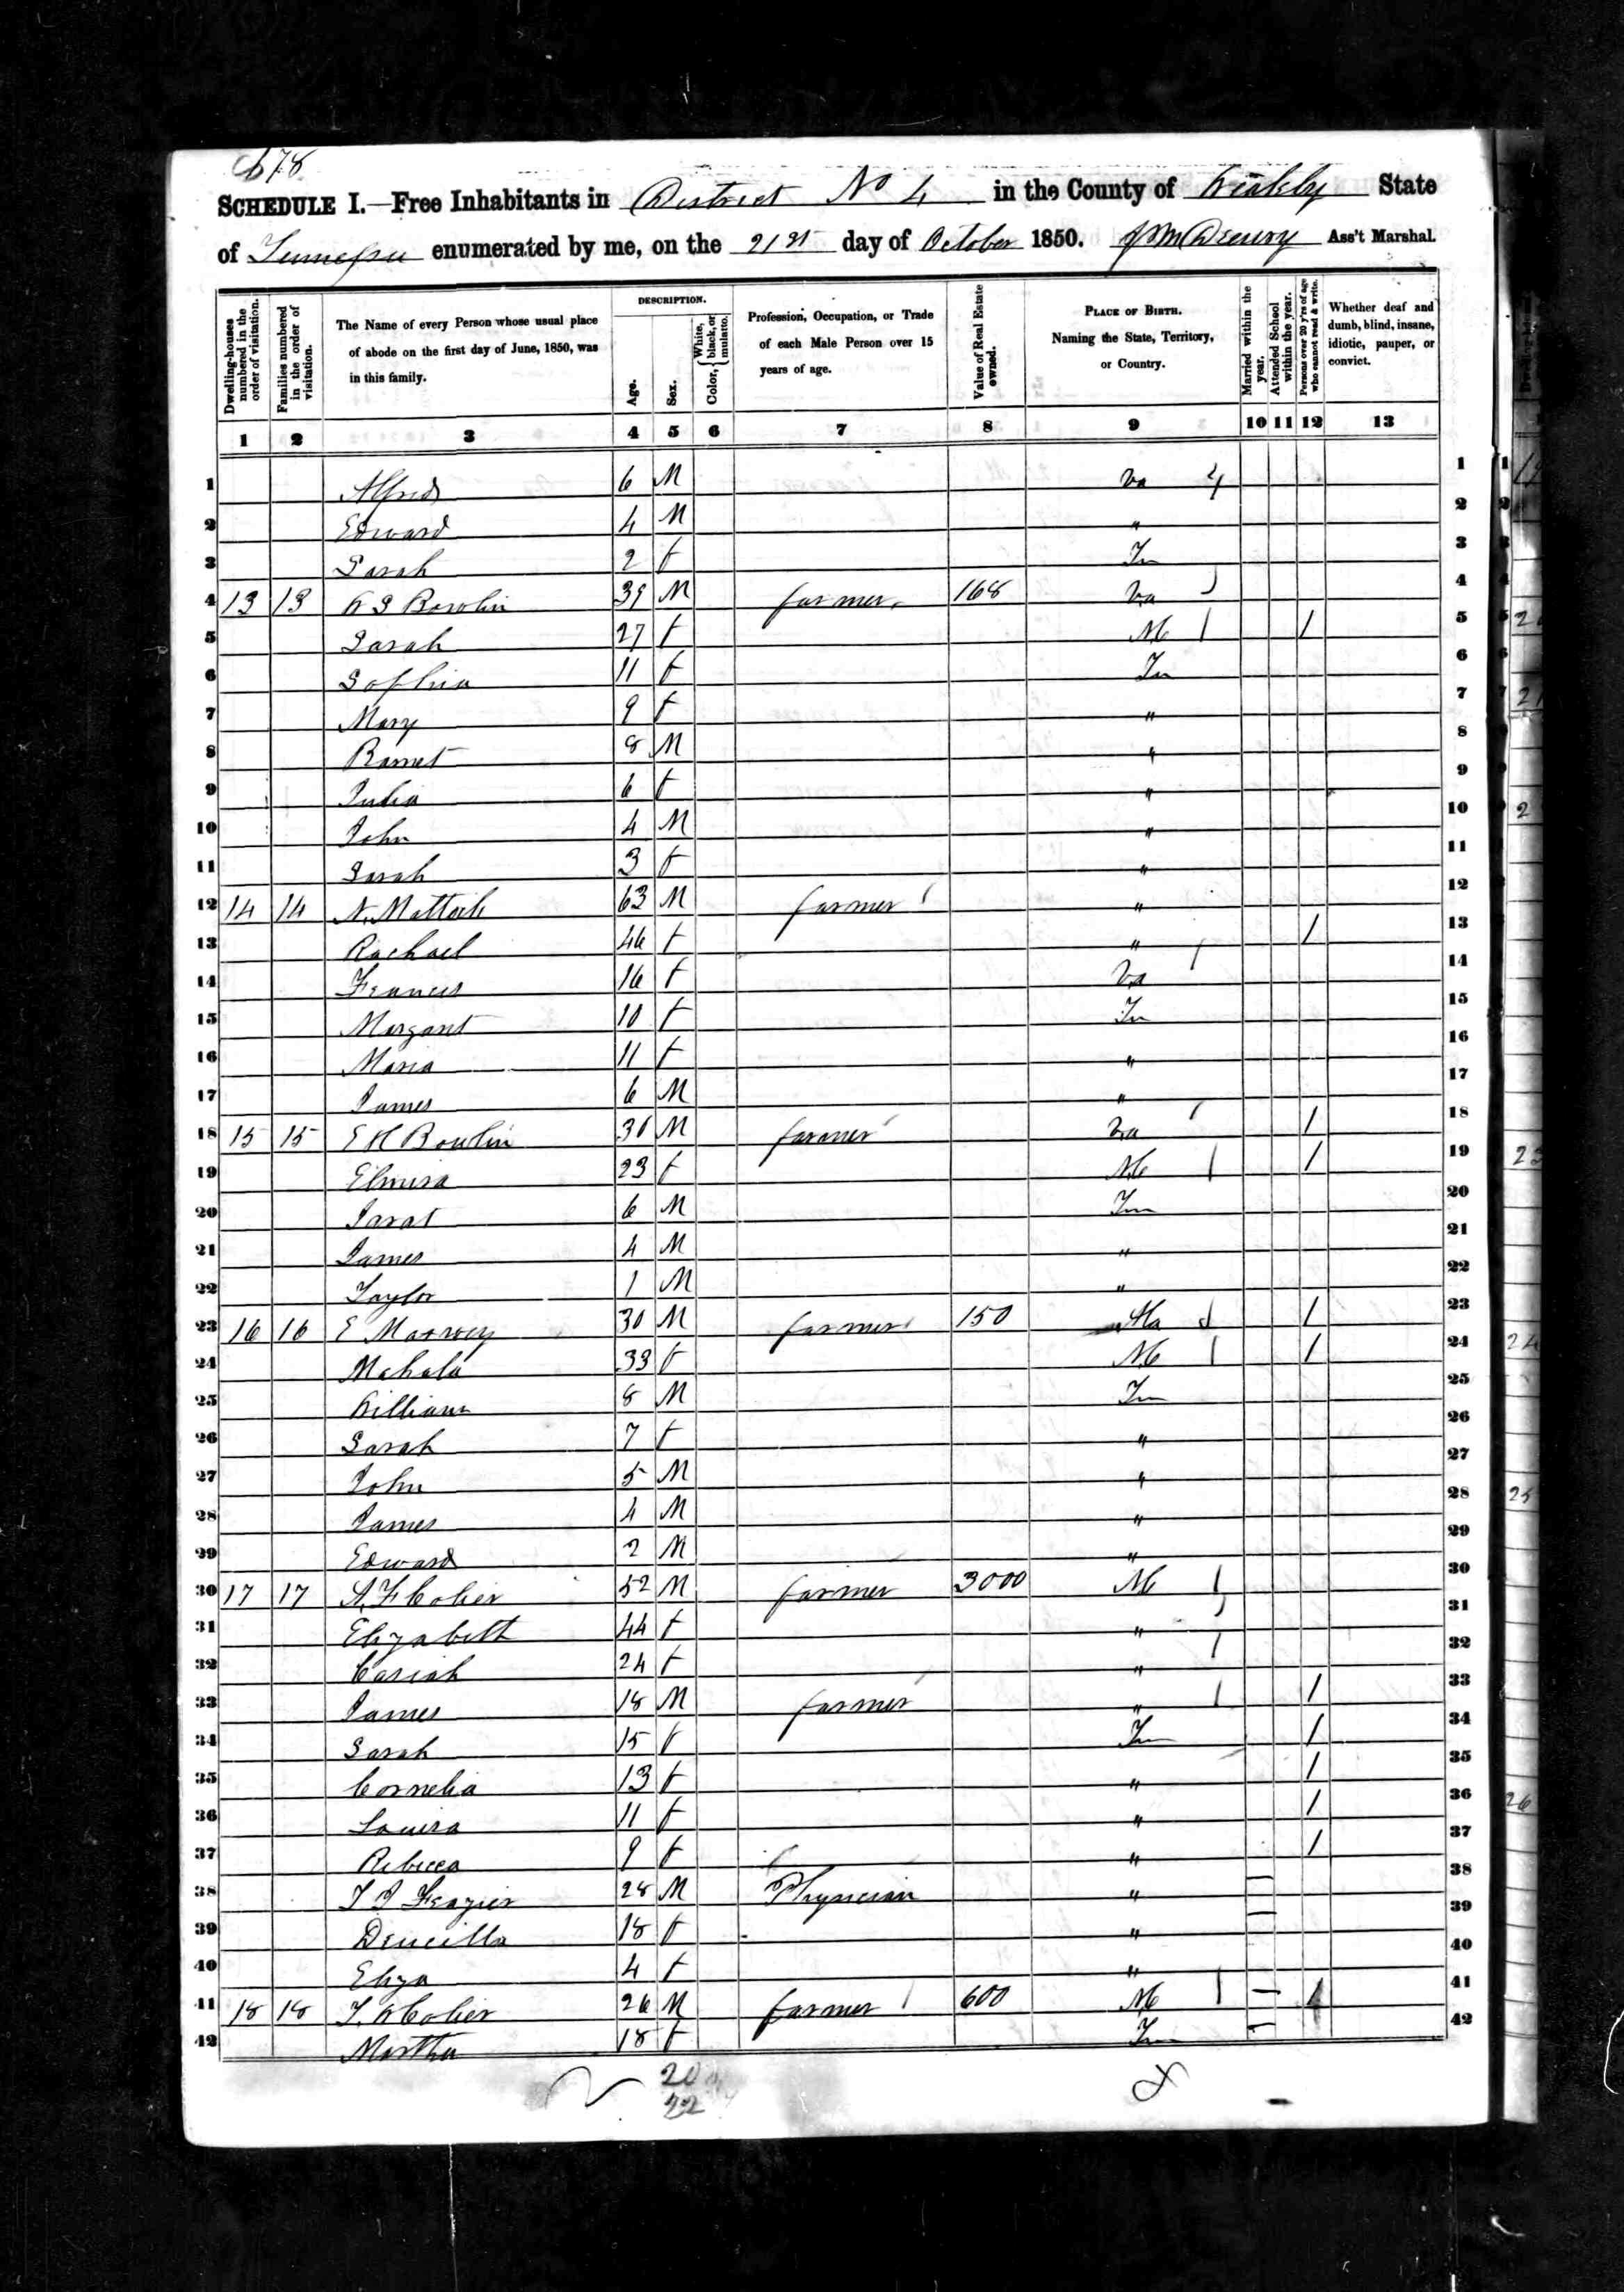 678
SCHEDULE I.—Free Inhabitants in District No 4 in the County of Weakly State
of Tennessee enumerated by me, on the 21st day of October 1850. Ass't Marshal.
Dwelling-houses numbered in the order of visitation.
Families numbered in the order of visitation.
The Name of every Person whose usual place of abode on the first day of June, 1850, was in this family.
DESCRIPTION.
Age.
Sex.
Color, White, black, or mulatto.
Profession, Occupation, or Trade of each Male Person over 15 years of age.
Value of Real Estate owned.
PLACE OF BIRTH. Naming the State, Territory, or Country.
Married within the year.
Attended School within the year.
Persons over 20 y'rs of age who cannot read & write.
Whether deaf and dumb, blind, insane, idiotic, pauper, or convict.
1 2 3 4 5 6 7 8 9 10 11 12 13
1 Alfred 6 M Va 1
2 Edward 4 M " 2
3 Sarah 2 f Tn 3
4 13 13 Bowlin 39 M farmer 168 Va 4
5 Sarah 27 f NC 1 5
6 Sophia 11 f Tn 6
7 Mary 9 f " 7
8 8 M " 8
9 Julia 6 f " 9
10 John 4 M " 10
11 Sarah 3 f " 11
12 14 14 N. Mattock 63 M farmer " 12
13 Rachael 46 f " 1 13
14 Frances 16 f Va 14
15 Margaret 10 f Tn 15
16 Maria 11 f " 16
17 James 6 M " 17
18 15 15 E H Bowlin 30 M farmer Va 1 18
19 Elmira 23 f NC 1 19
20 6 M Tn 20
21 James 4 M " 21
22 Taylor 1 M " 22
23 16 16 E 30 M farmer 150 1 23
24 Mahala 33 f NC 1 24
25 William 8 M Tn 25
26 Sarah 7 f " 26
27 John 5 M " 27
28 James 4 M " 28
29 Edward 2 M " 29
30 17 17 A. F Colier 52 M farmer 3000 NC 30
31 Elizabeth 44 f " 31
32 24 f " 32
33 James 18 M farmer " 1 33
34 Sarah 15 f Tn 1 34
35 Cornelia 13 f " 1 35
36 Louisa 11 f " 1 36
37 Rebecca 9 f " 1 37
38 T J Frazier 28 M Physician " 38
39 Drucilla 18 f " 39
40 Eliza 4 f " 40
41 18 18 Colier 26 M farmer 600 NC 1 41
42 Martha 18 f Tn 42
20
22